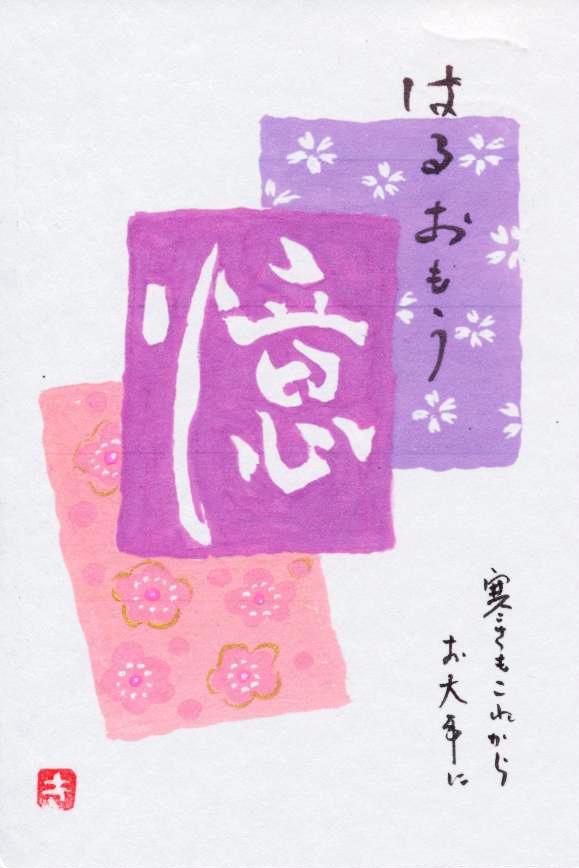 はるおもう
憶
寒さもこれから
お大事に